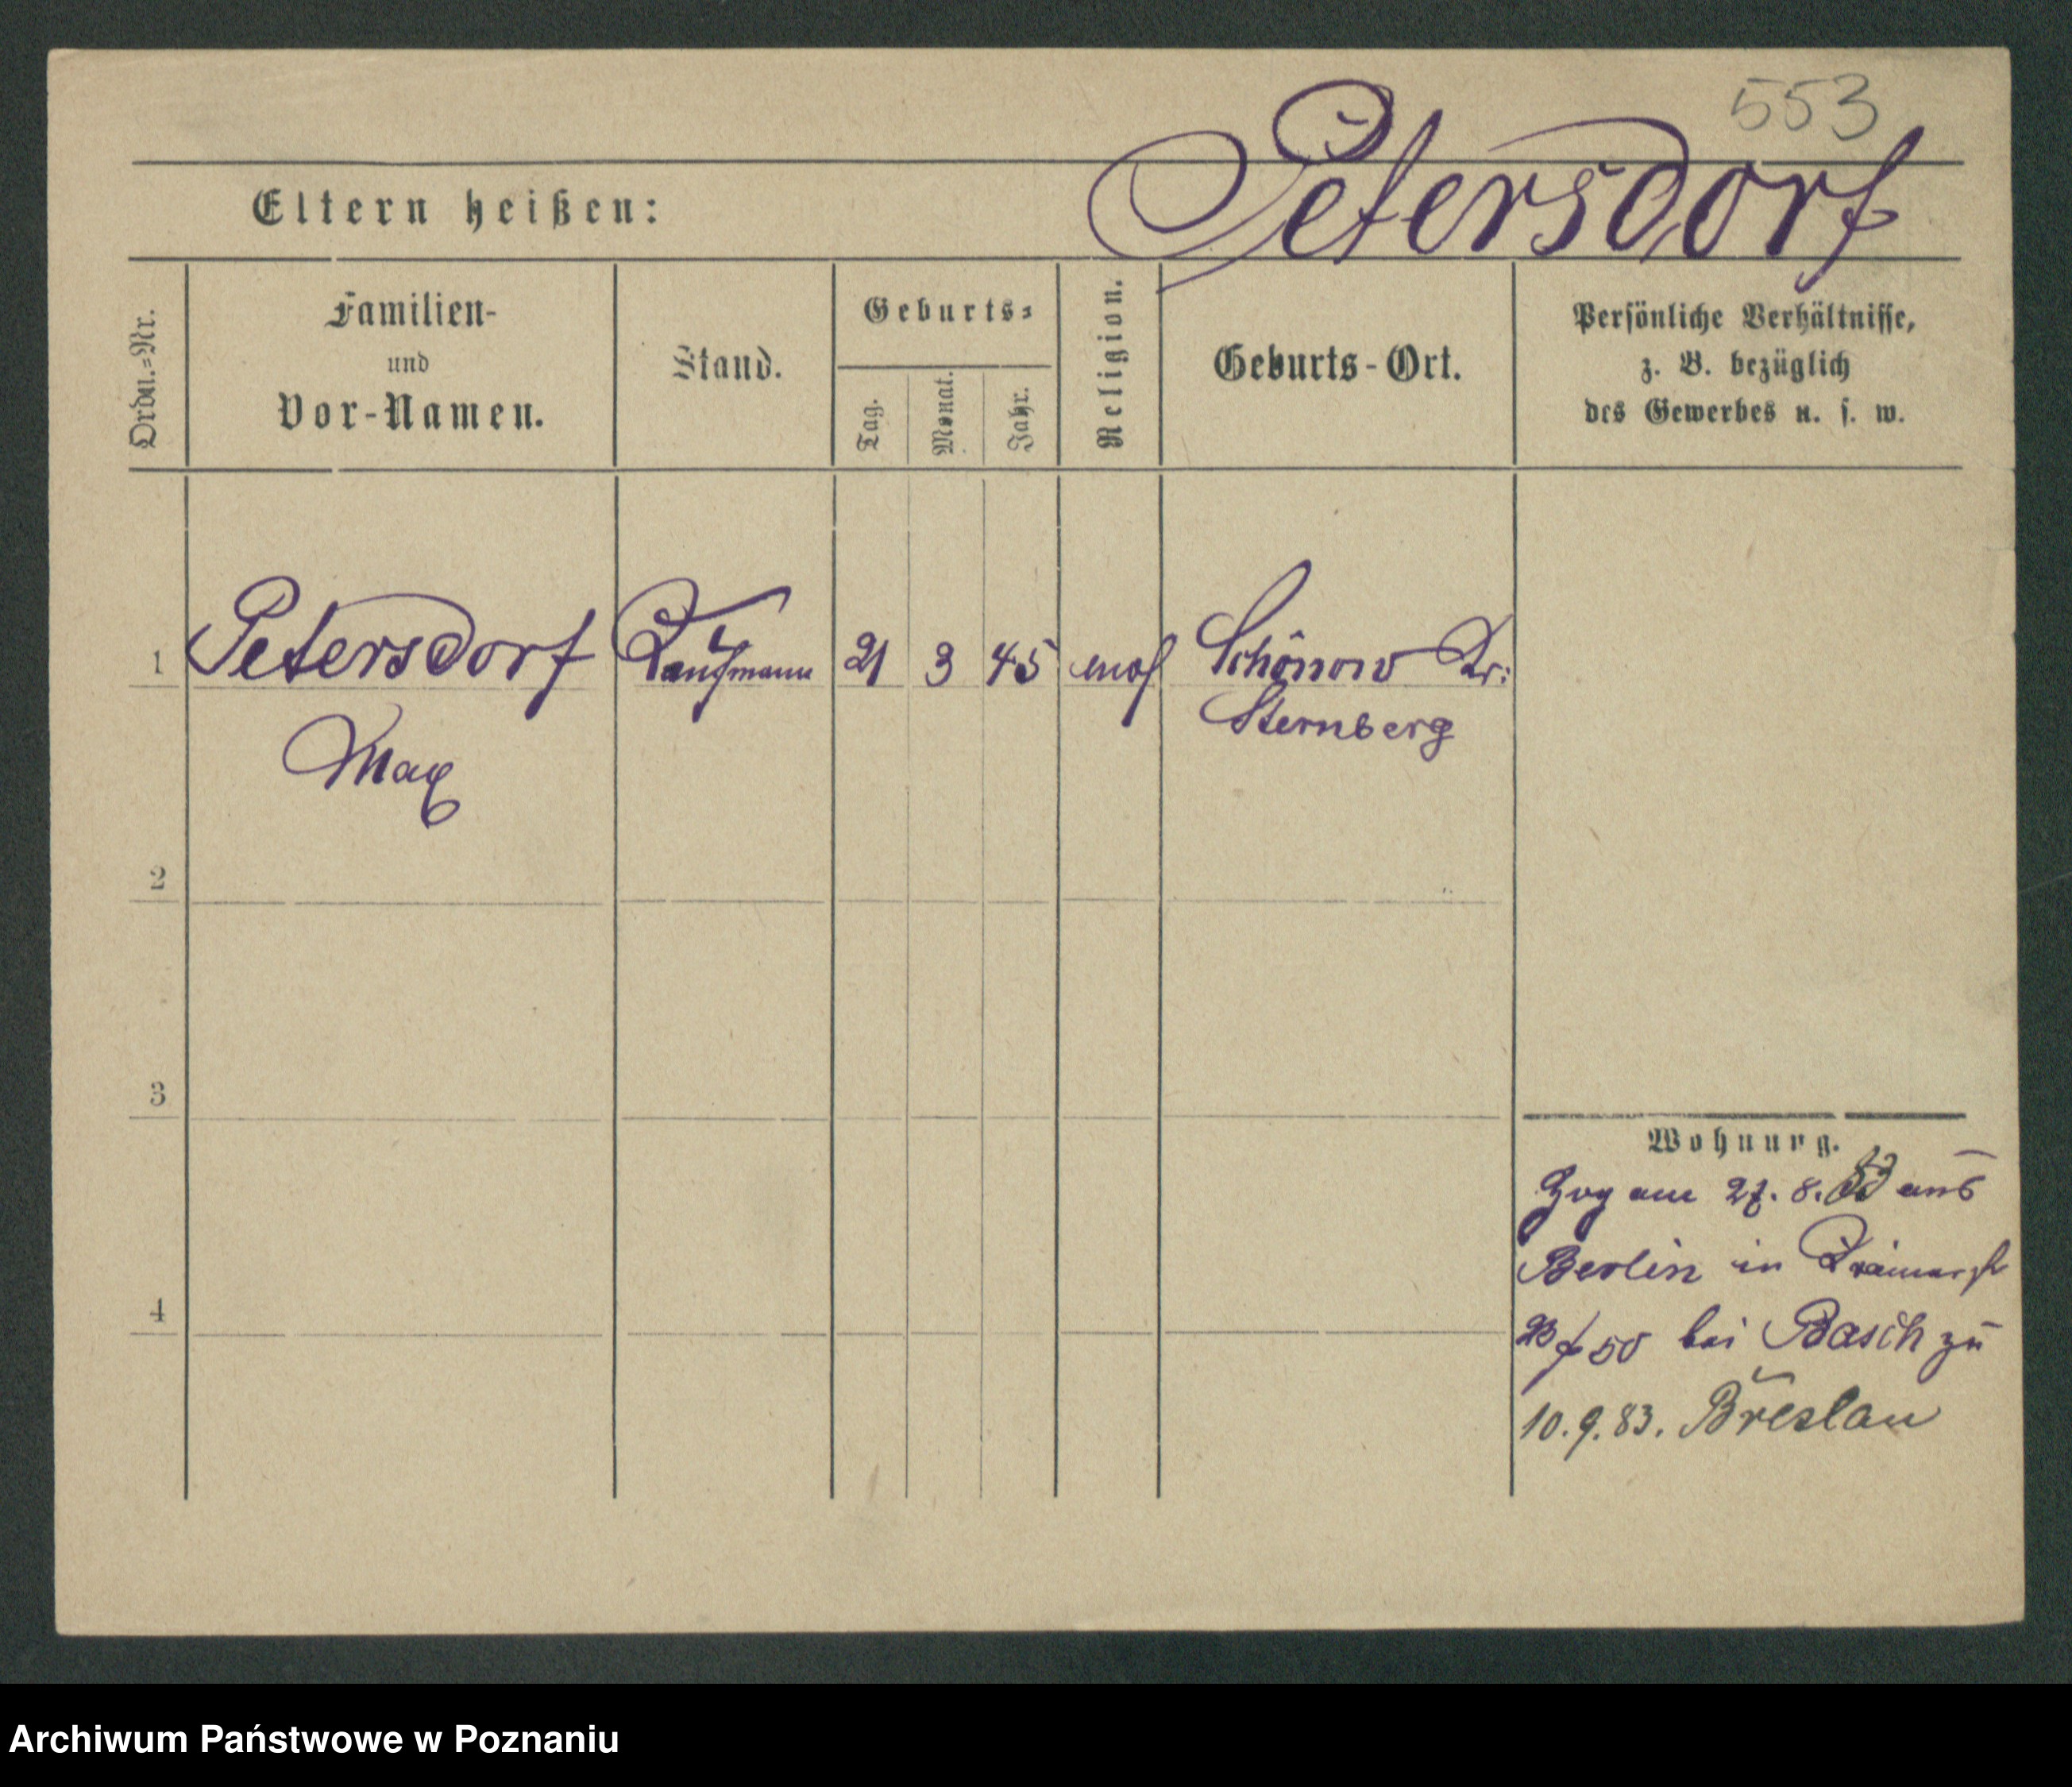 553
Petersdorf
Eltern heißen:
Ordn.=Nr.
Familien-
und
Vor-Namen.
Stand.
Geburts=
Tag.
Monat.
Jahr.
Religion.
Geburts-Ort.
Persönliche Verhältnisse,
z. B. bezüglich
des Gewerbes u. s. w.
1 Petersdorf Kaufmann 21 3 45 mos Schönow Kr:
Sternberg
Max
2
3
4
Wohnung.
Zog am 27. 8. 83 aus
Berlin in
bei Basch zu
10. 9. 83. Breslau
Archiwum Państwowe w Poznaniu